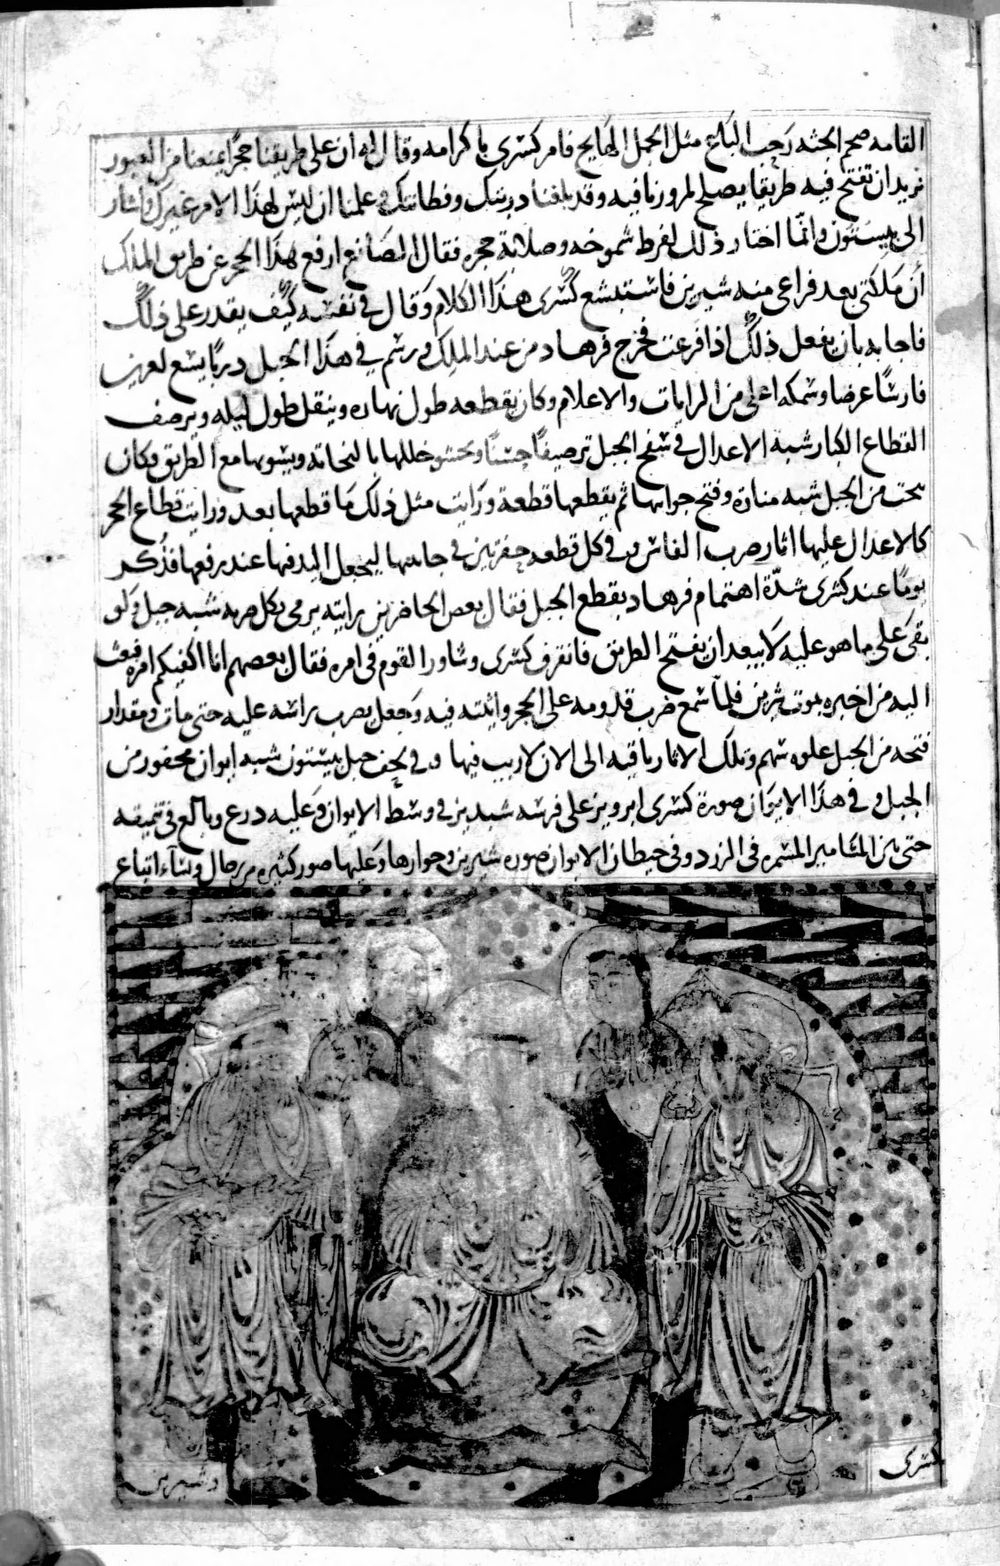 القامه ضخم الجثه رحب الباع مثل الجمل الهايج فامر كسرى باكرامه وقال له ان على طريقنا حجرا يمنعنا من العبور
نريد ان تفتح فيه طريقا يصلح لمرورنا فيه وقد بلغنا دربتك وفطانتك علمنا ان ليس لهذا الامر غيرك واشار
الى بيستون وانما اختار ذلك لفرط شموخه وصلابة حجره فقال الصانع ارفع هذا الحجر عن طريق الملك
ان ملكني بعد فراغي منه شيرين فاستبشع كسرى هذا الكلام وقال في نفسه كيف يقدر على ذلك
فاجابه بان يفعل ذلك اذا فرغت فخرج فرهاد من عند الملك ورسم في هذا الجبل دربا يسع لعشرين
فارسا عرضا وسمكه اعلى من الرايات والاعلام وكان يقطعه طول نهاره وينقل طول ليله ويرصف
القطاع الكبار شبه الاعدال في سفح الجبل ترصيفا حسنا ويحشو خللها بالنحاتة ويسويها مع الطريق وكان
ينحت من الجبل شبه مناره وفتح جوانبها ثم يقطعها قطعة ورايت مثل ذلك ما قطعها بعد ورايت قطاع الحجر
كالاعدال عليها اثار ضرب الفاس وفي كل قطعه حفرتين في جانبيها ليجعل اليد فيها عند رفعها فذكر
يوما عند كسرى شدة اهتمام فرهاد بقطع الجبل فقال بعض الحاضرين رايته يرمي بكل ضربه شبه جبل ولو
بقي على ما هو عليه لا يبعد ان يفتح الطريق فانفرق كسرى وشاور القوم في امره فقال بعضهم انا اكفيكم امره فبعث
اليه من اخبره بموت شيرين فلما سمع ضرب قدومه على الحجر واثبته فيه وجعل يضرب براسه عليه حتى مات ومقدار
فتحه من الجبل غلوه سهم وتلك الاثار باقيه الى الان لا ريب فيها وفي لحف جبل بيستون شبه ايوان محفور من
الجبل وفي هذا الايوان صورة كسرى ابرويز على فرسه شبديز في وسط الايوان وعليه درع وبالغ في تنميقه
حتى بين المسامير المسمره في الزرد وفي حيطان الايوان صوره شيرين وجوارها وعليها صور كثيره من رجال ونساء اتباع
كسرى
وشيرين